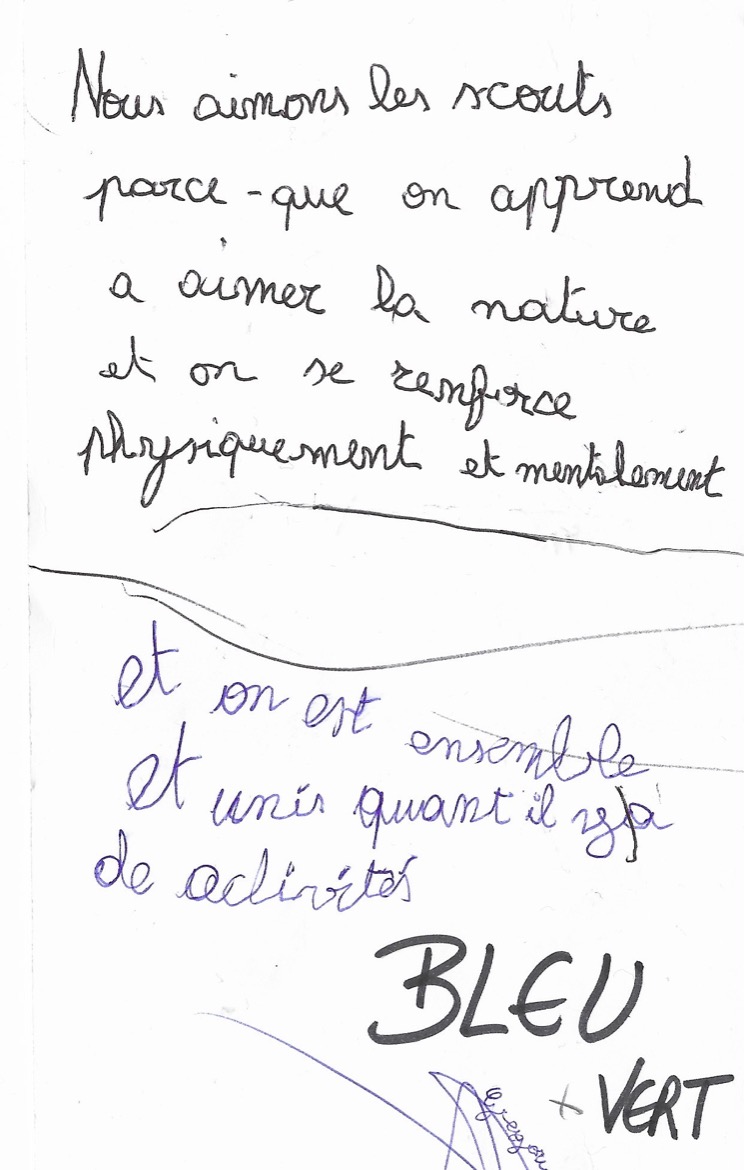 Nous aimons les scouts
parce-que on apprend
a aimer la nature
et on se renforce
physiquement et mentalement
et on est ensemble
et unis quant il y a
de activités
BLEU
+ VERT